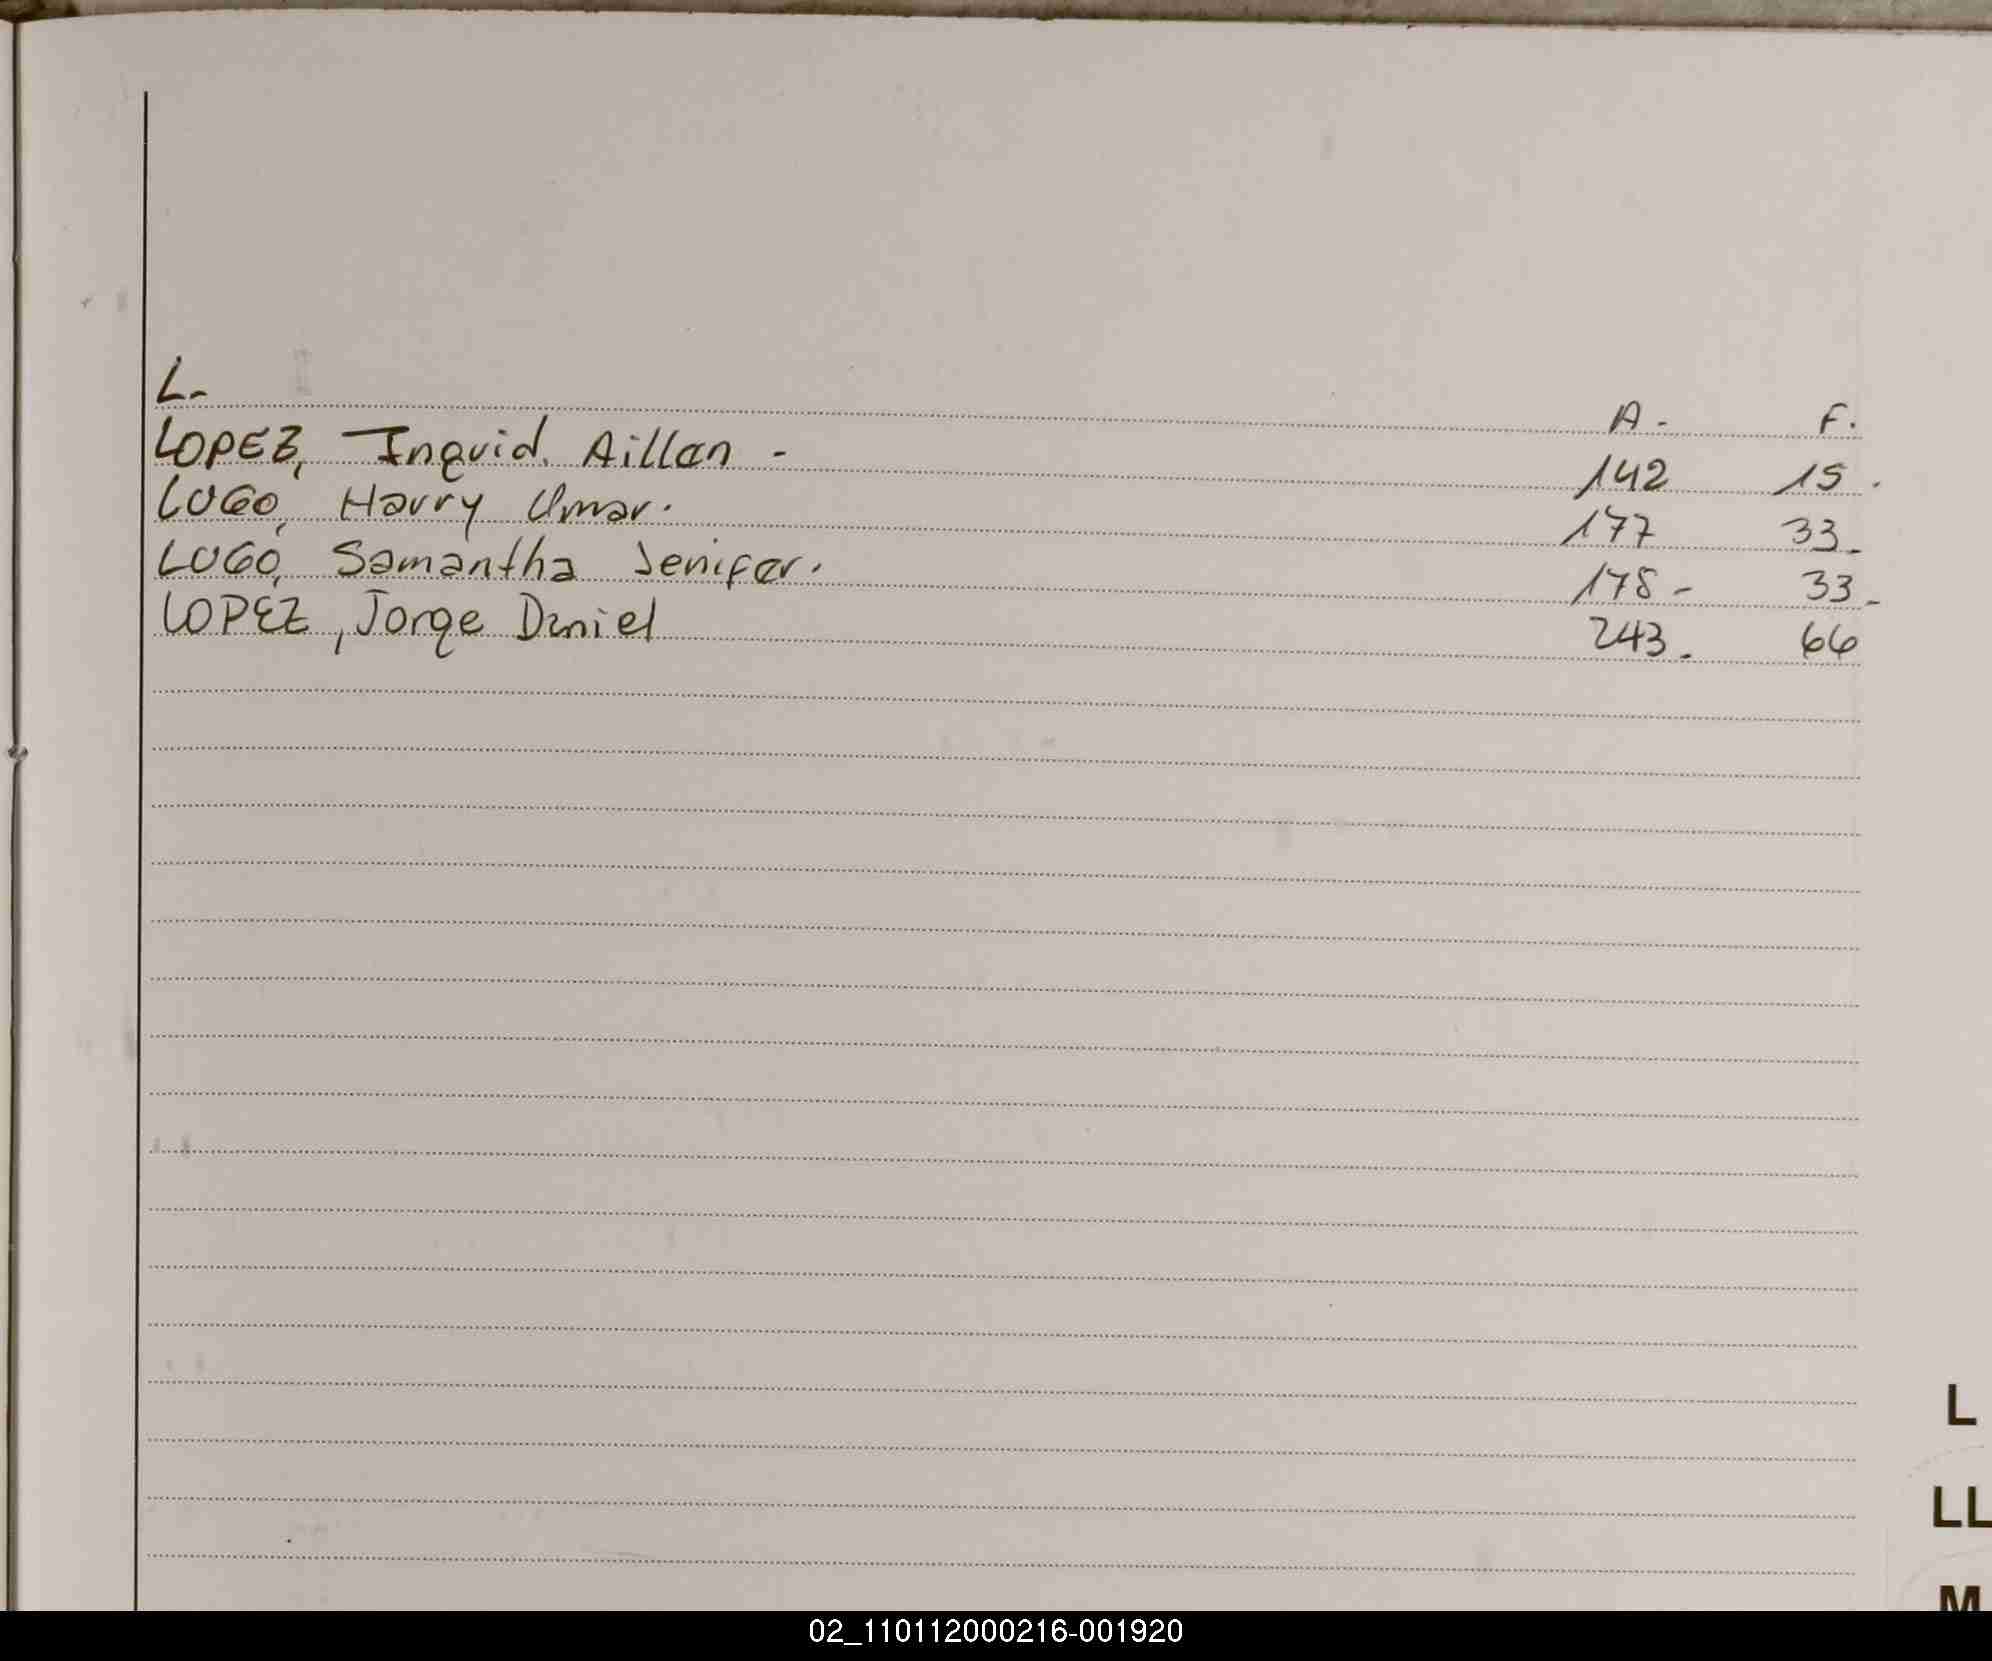 L-
A- F.
LOPEZ, Ingrid. Aillan - 142 15.
LUGO, Harry Umar. 177 33-
LUGO, Samantha Jenifer. 178- 33-
LOPEZ, Jorge Daniel 243. 66
L
LL
M
02_110112000216-001920